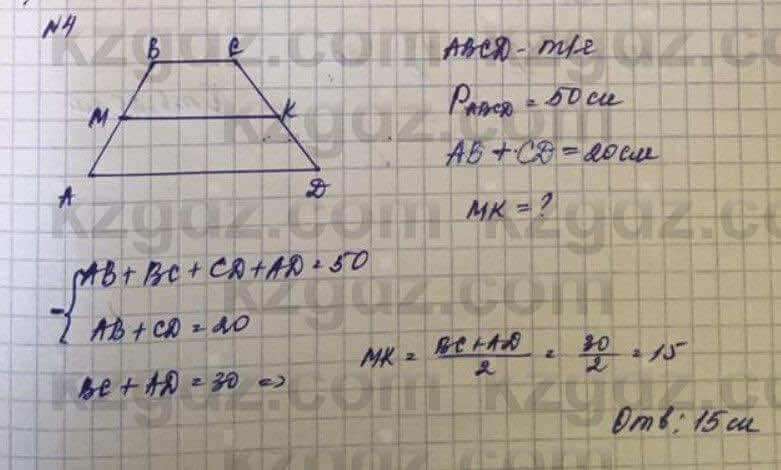 №4
B C
M K
A D
ABCD - тр/е
P ABCD = 50 см
AB + CD = 20 см
MK = ?
{ AB + BC + CD + AD = 50
- AB + CD = 20
BC + AD = 30 =>
MK = BC + AD / 2 = 30 / 2 = 15
Отв: 15 см
kzgdz.com